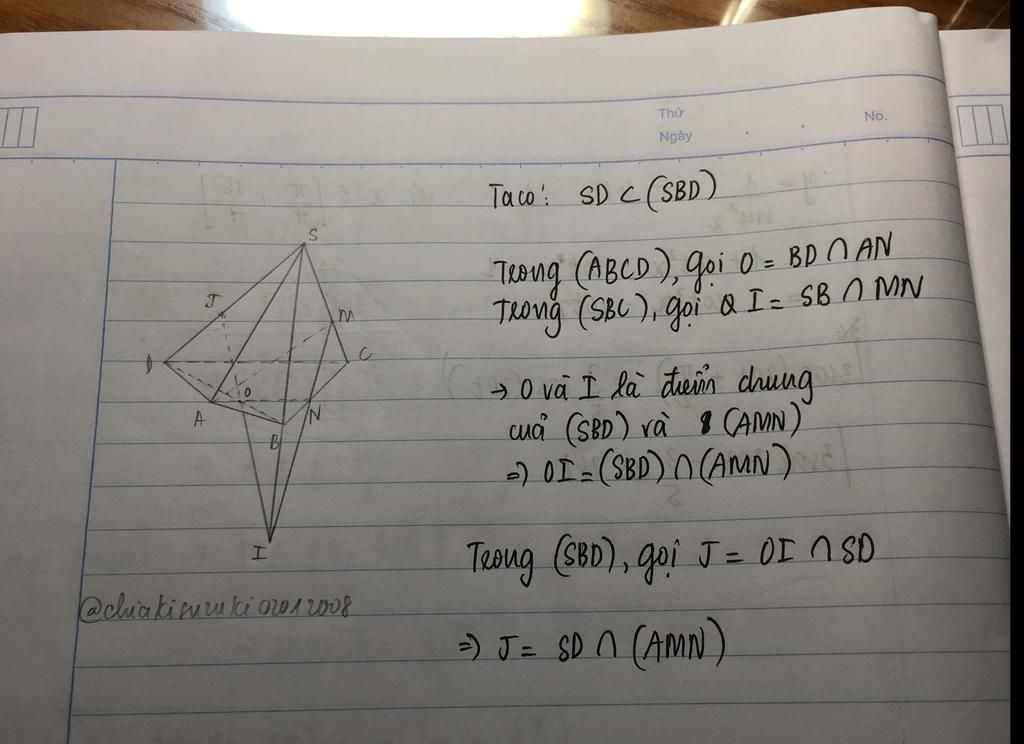 Thứ
Ngày
No.
Ta có: SD ⊂ (SBD)
Trong (ABCD), gọi O = BD ∩ AN
Trong (SBC), gọi I = SB ∩ MN
→ O và I là điểm chung
của (SBD) và (AMN)
=> OI = (SBD) ∩ (AMN)
Trong (SBD), gọi J = OI ∩ SD
=> J = SD ∩ (AMN)
S
J
M
D
C
O
A
N
B
I
@chiakisuzuki02012008